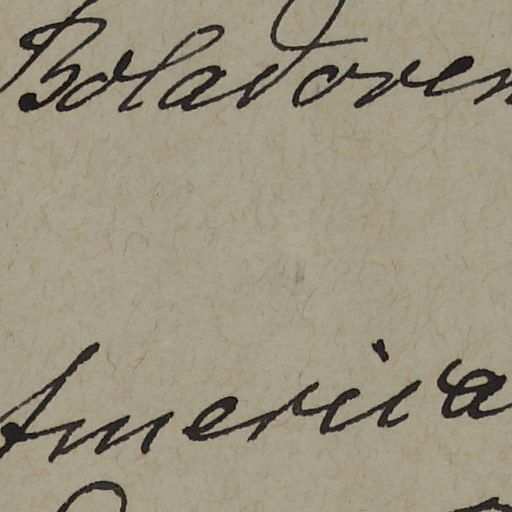 Boladoren
America